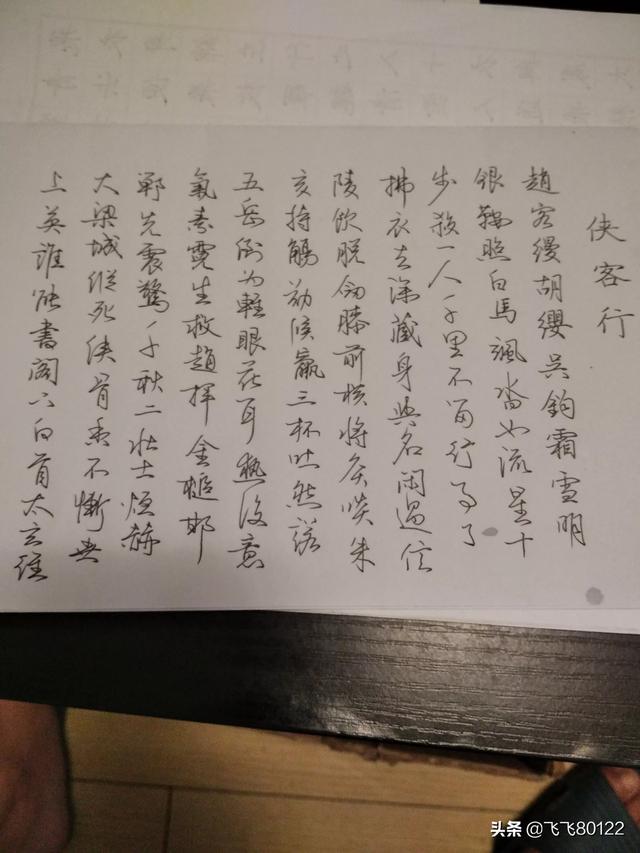 侠客行
趙客縵胡纓吴鈎霜雪明
银鞍照白馬颯沓如流星十
步殺一人千里不留行事了
拂衣去深藏身與名闲過信
陵飲脱劍膝前横将炙啖朱
亥持觴勸侯嬴三杯吐然諾
五岳倒为輕眼花耳熱後意
氣素霓生救趙挥金槌邯
鄲先震驚千秋二壮士烜赫
大梁城縱死侠骨香不慚世
上英誰能書阁下白首太玄經
头条 @飞飞80122